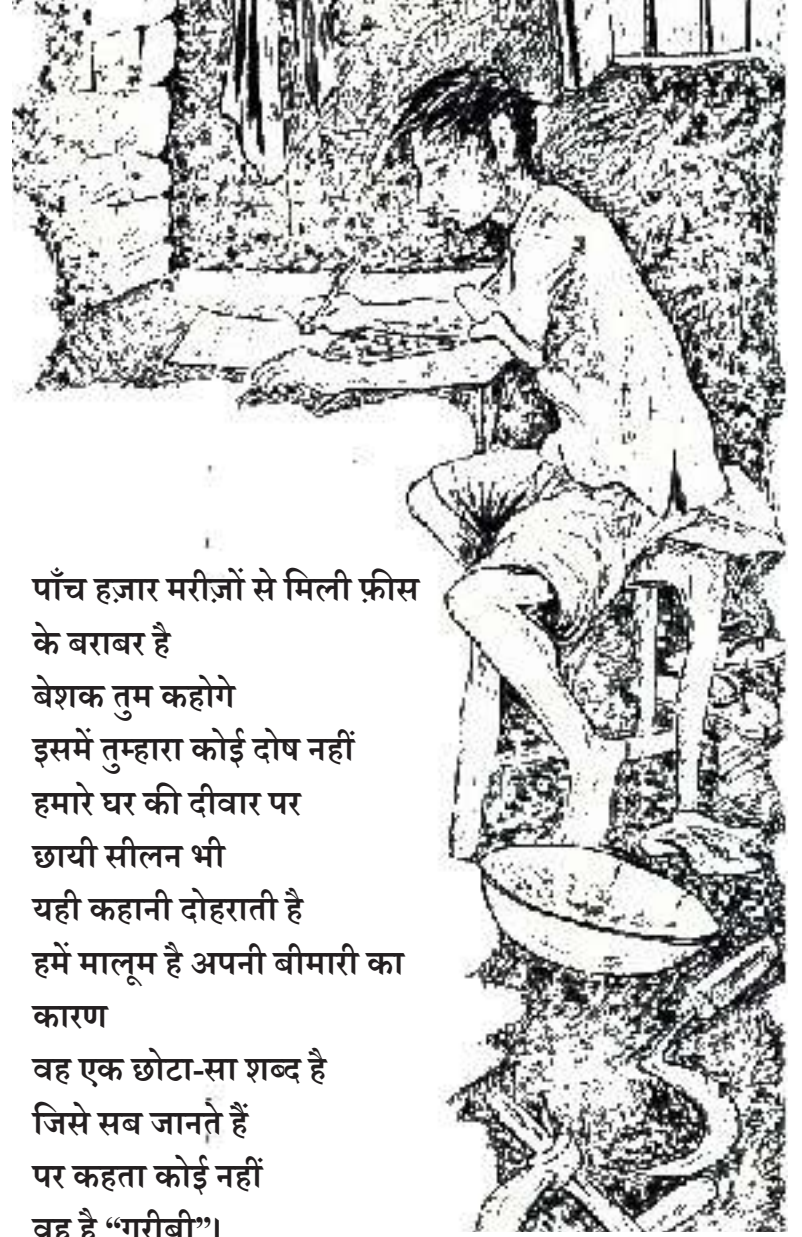 पाँच हज़ार मरीज़ों से मिली फ़ीस
के बराबर है
बेशक तुम कहोगे
इसमें तुम्हारा कोई दोष नहीं
हमारे घर की दीवार पर
छायी सीलन भी
यही कहानी दोहराती है
हमें मालूम है अपनी बीमारी का
कारण
वह एक छोटा-सा शब्द है
जिसे सब जानते हैं
पर कहता कोई नहीं
वह है “गरीबी”।